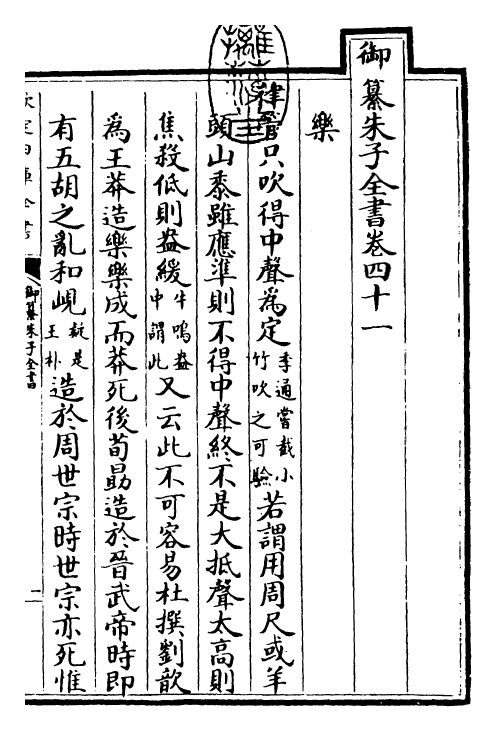 御纂朱子全書卷四十一
樂
律管只吹得中聲為定季通嘗截小竹吹之可驗若謂用周尺或羊
頭山黍雖應準則不得中聲終不是大抵聲太高則
焦殺低則盎緩牛鳴盎中謂此又云此不可容易杜撰劉歆
為王莽造樂樂成而莽死後荀勗造於晉武帝時即
有五胡之亂和峴疑是王朴造於周世宗時世宗亦死惟
欽定四庫全書
御纂朱子全書
二